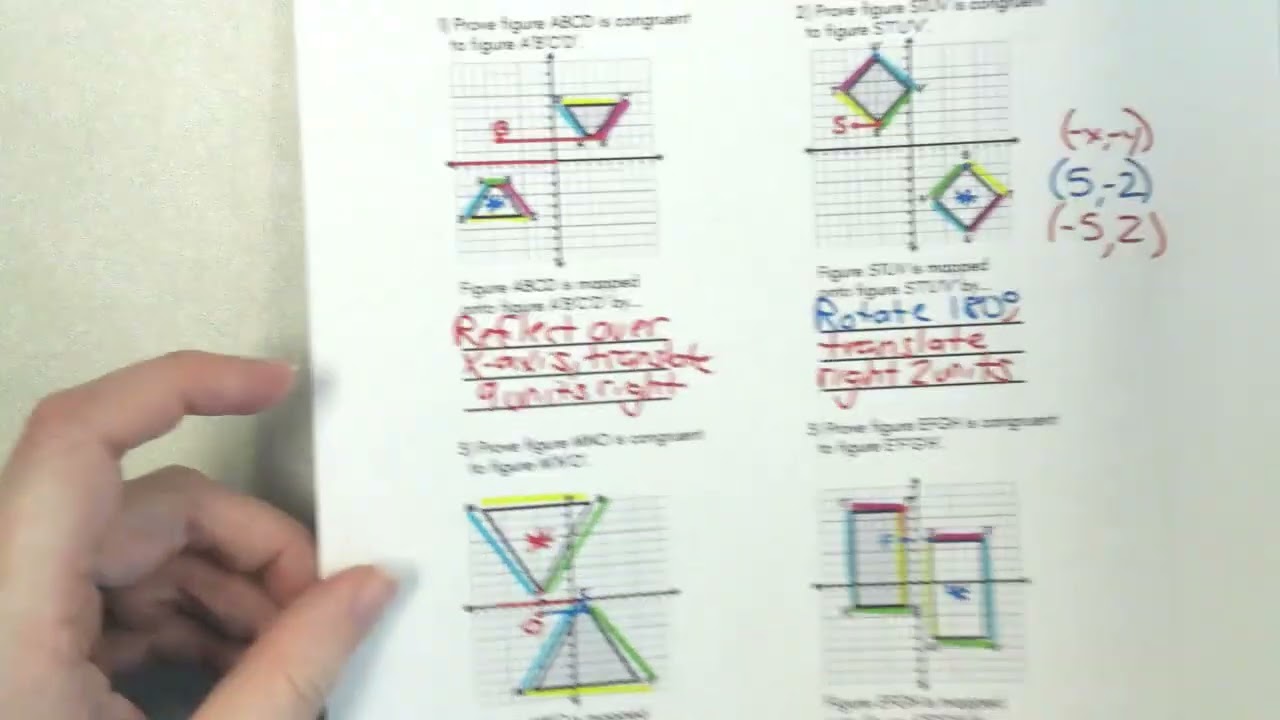 1) Prove figure ABCD is congruent
to figure A'B'C'D'.
B
Figure ABCD is mapped
onto figure A'B'C'D' by...
Reflect over
x-axis, translate
9 units right
2) Prove figure STUV is congruent
to figure S'T'U'V'.
S
(-x,-y)
(5,-2)
(-5,2)
Figure STUV is mapped
onto figure S'T'U'V' by...
Rotate 180°,
translate
right 2 units
3) Prove figure is congruent
to figure
3) Prove figure EFGH is congruent
to figure E'F'G'H'.
is mapped
Figure EFGH is mapped